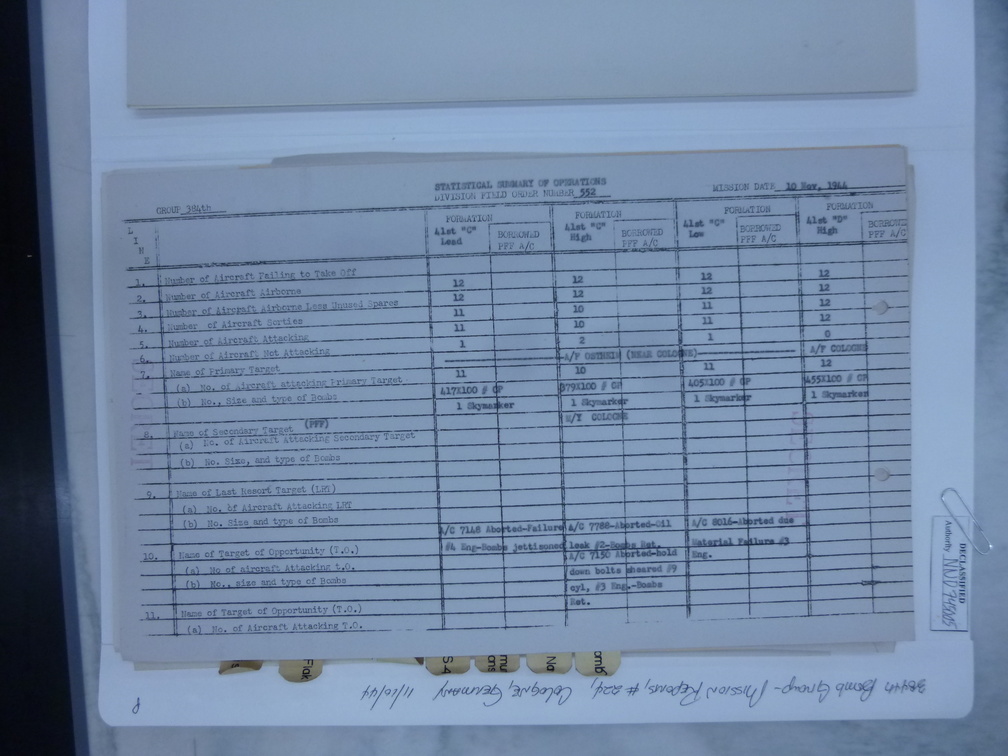 STATISTICAL SUMMARY OF OPERATIONS
DIVISION FIELD ORDER NUMBER 552
MISSION DATE 10 Nov, 1944
GROUP 384th
L I N E
FORMATION FORMATION FORMATION FORMATION
41st "C" Lead BORROWED PFF A/C 41st "C" High BORROWED PFF A/C 41st "C" Low BORROWED PFF A/C 41st "D" High BORROWED PFF A/C
1. Number of Aircraft Failing to Take Off
2. Number of Aircraft Airborne 12 12 12 12
3. Number of Aircraft Airborne Less Unused Spares 12 12 12 12
4. Number of Aircraft Sorties 11 10 11 12
5. Number of Aircraft Attacking 11 10 11 12
6. Number of Aircraft Not Attacking 1 2 1 0
7. Name of Primary Target A/F OSTHEIM (NEAR COLOGNE) A/F COLOGNE
(a) No. of Aircraft attacking Primary Target 11 10 11 12
(b) No., Size and type of Bombs 417X100 # GP 379X100 # GP 405X100 # GP 455X100 # GP
1 Skymarker 1 Skymarker 1 Skymarker 1 Skymarker
8. Name of Secondary Target (PFF) M/Y COLOGNE
(a) No. of Aircraft Attacking Secondary Target
(b) No. Size, and type of Bombs
9. Name of Last Resort Target (LRT)
(a) No. of Aircraft Attacking LRT
(b) No. Size and type of Bombs
A/C 7148 Aborted-Failure #4 Eng-Bombs jettisoned
A/C 7788-Aborted-Oil leak #2-Bombs Ret.
A/C 7150 Aborted-hold down bolts sheared #9 cyl, #3 Eng.-Bombs Ret.
A/C 8016-Aborted due Material Failure #3 Eng.
10. Name of Target of Opportunity (T.O.)
(a) No of aircraft Attacking t.O.
(b) No., size and type of Bombs
11. Name of Target of Opportunity (T.O.)
(a) No. of Aircraft Attacking T.O.
DECLASSIFIED
Authority NND 745005
Flak
S-4
Na
omb
384th Bomb Group - Mission Reports, #224, Cologne, Germany 11/10/44